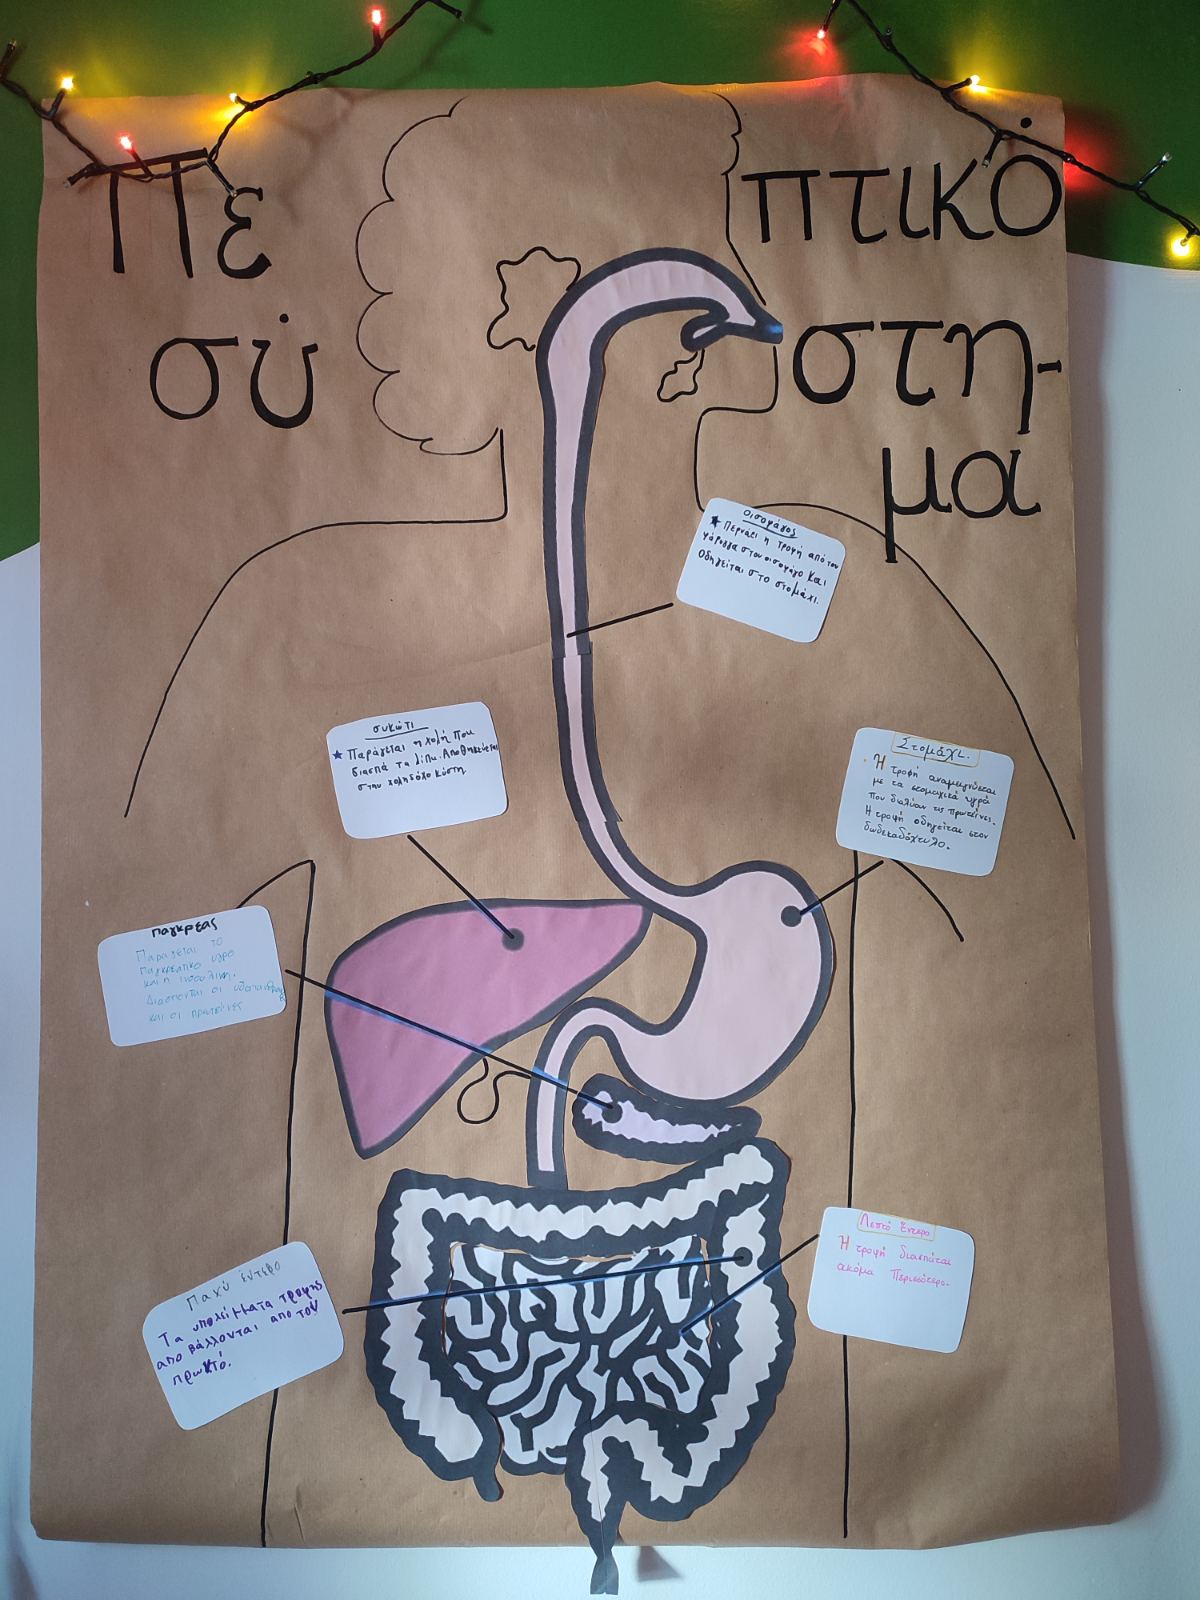 Πε
πτικό
σύ
στη-
μα
Οισοφάγος
★ Περνάει η τροφή από τον
φάρυγγα στον οισοφάγο και
οδηγείται στο στομάχι.
συκώτι
★ Παράγεται η χολή που
διασπά τα λίπη. Αποθηκεύεται
στην χοληδόχο κύστη
Στομάχι.
Η τροφή αναμειγνύεται
με τα στομαχικά υγρά
που διαλύουν τις πρωτεΐνες.
Η τροφή οδηγείται στον
δωδεκαδάχτυλο.
παγκρεας
Παραγεται το
παγκρεατικό υγρο
και η ινσουλινη.
Διασπονται οι υδατανθρακες
και οι πρωτεΐνες
Λεπτό Έντερο
Η τροφή διασπάται
ακόμα περισσότερο.
Παχύ έντερο
Τα υπολείμματα τροφής
απο βάλλονται απο τον
πρωκτό.